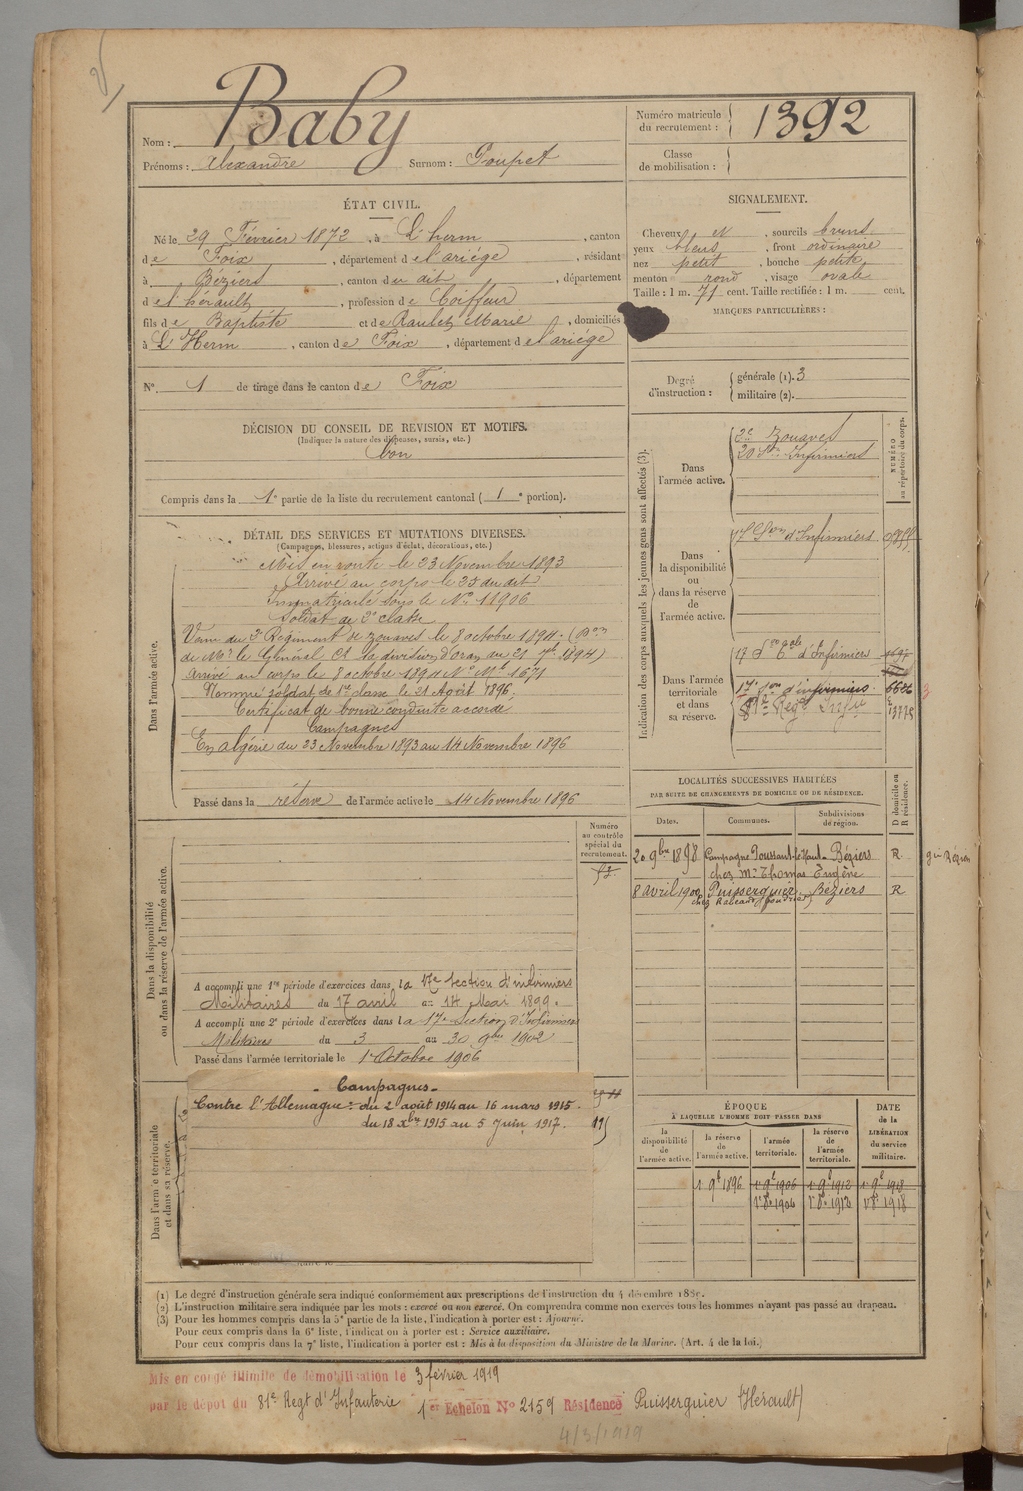 Nom : Baby
Prénoms : Alexandre Surnom : Goupet
Numéro matricule
du recrutement : 1392
Classe
de mobilisation :
ÉTAT CIVIL.
Né le 29 Février 1872, à L'herm, canton
de Foix, département de l'ariége, résidant
à Béziers, canton du dit, département
de l'hérault, profession de Coiffeur
fils de Baptiste et de Raulet Marie, domiciliés
à L'Herm, canton de Foix, département de l'ariége
N° 1 de tirage dans le canton de Foix
SIGNALEMENT.
Cheveux et, sourcils bruns
yeux bleus, front ordinaire
nez petit, bouche petite
menton rond, visage ovale
Taille : 1 m. 71 cent. Taille rectifiée : 1 m. cent.
MARQUES PARTICULIÈRES :
Degré
d'instruction :
générale (1). 3
militaire (2).
DÉCISION DU CONSEIL DE REVISION ET MOTIFS.
(Indiquer la nature des dispenses, sursis, etc.)
bon
Compris dans la 1e partie de la liste du recrutement cantonal (1e portion).
DÉTAIL DES SERVICES ET MUTATIONS DIVERSES.
(Campagnes, blessures, actions d'éclat, décorations, etc.)
Dans l'armée active.
Mis en route le 23 Novembre 1893
Arrivé au corps le 25 du dit
Immatriculé sous le N° 11906
Soldat de 2e classe
Venu du 2e Régiment de zouaves le 8 octobre 1894; (Don
de Mr le Général Ct la division d'Oran du 21 7bre 1894)
arrivé au corps le 8 octobre 1894 N° Mle 1671
Nommé soldat de 1re classe le 21 Août 1896.
Certificat de bonne conduite accordé
Campagnes
En algérie du 23 Novembre 1893 au 14 Novembre 1896
Passé dans la réserve de l'armée active le 14 Novembre 1896
Indication des corps auxquels les jeunes gens sont affectés (3).
NUMÉRO
au répertoire du corps.
Dans
l'armée active.
2e Zouaves
20 Son Infirmiers
Dans
la disponibilité
ou
dans la réserve
de
l'armée active.
17 Son d'Infirmiers
Dans l'armée
territoriale
et dans
sa réserve.
17 Son Eale d'Infirmiers
17e son d'infirmiers. 6626
81e Regt Infie 13775
LOCALITÉS SUCCESSIVES HABITÉES
PAR SUITE DE CHANGEMENTS DE DOMICILE OU DE RÉSIDENCE.
D domicile ou
R résidence.
Dates. Communes. Subdivisions
de région.
20 9bre 1898 Campagne Toussaint-le-Haut- Béziers R
chez Mr Thomas Eugène
8 avril 1900 Puisserguier Béziers R
Dans la disponibilité
ou dans la réserve de l'armée active.
Numéro
au contrôle
spécial du
recrutement.
A accompli une 1re période d'exercices dans la 17e Section d'infirmiers
Militaires du 17 avril au 14 Mai 1899.
A accompli une 2e période d'exercices dans la 17e Section d'Infirmiers
Militaires du 3 au 30 9bre 1902
Passé dans l'armée territoriale le 1er Octobre 1906
Dans l'armée territoriale
et dans sa réserve.
- Campagnes -
Contre l'Allemagne : du 2 août 1914 au 16 mars 1915.
du 18 Xbre 1915 au 5 Juin 1917.
ÉPOQUE
À LAQUELLE L'HOMME DOIT PASSER DANS
DATE
de la
LIBÉRATION
du service
militaire.
la
disponibilité
de
l'armée active.
la réserve
de
l'armée active.
l'armée
territoriale.
la réserve
de
l'armée
territoriale.
1 9e 1896 1 9e 1906 1 9e 1912 1 9e 1918
1r 8e 1906 1r 8e 1912 1r 8e 1918
(1) Le degré d'instruction générale sera indiqué conformément aux prescriptions de l'instruction du 4 décembre 1889.
(2) L'instruction militaire sera indiquée par les mots : exercé ou non exercé. On comprendra comme non exercés tous les hommes n'ayant pas passé au drapeau.
(3) Pour les hommes compris dans la 5e partie de la liste, l'indication à porter est : Ajourné.
Pour ceux compris dans la 6e liste, l'indication à porter est : Service auxiliaire.
Pour ceux compris dans la 7e liste, l'indication à porter est : Mis à la disposition du Ministre de la Marine. (Art. 4 de la loi.)
Mis en congé illimité de démobilisation le 3 février 1919
par le dépôt du 81e Regt d'Infanterie 1er Echelon N° 2159 Résidence Puisserguier (Hérault)
4/3/1919